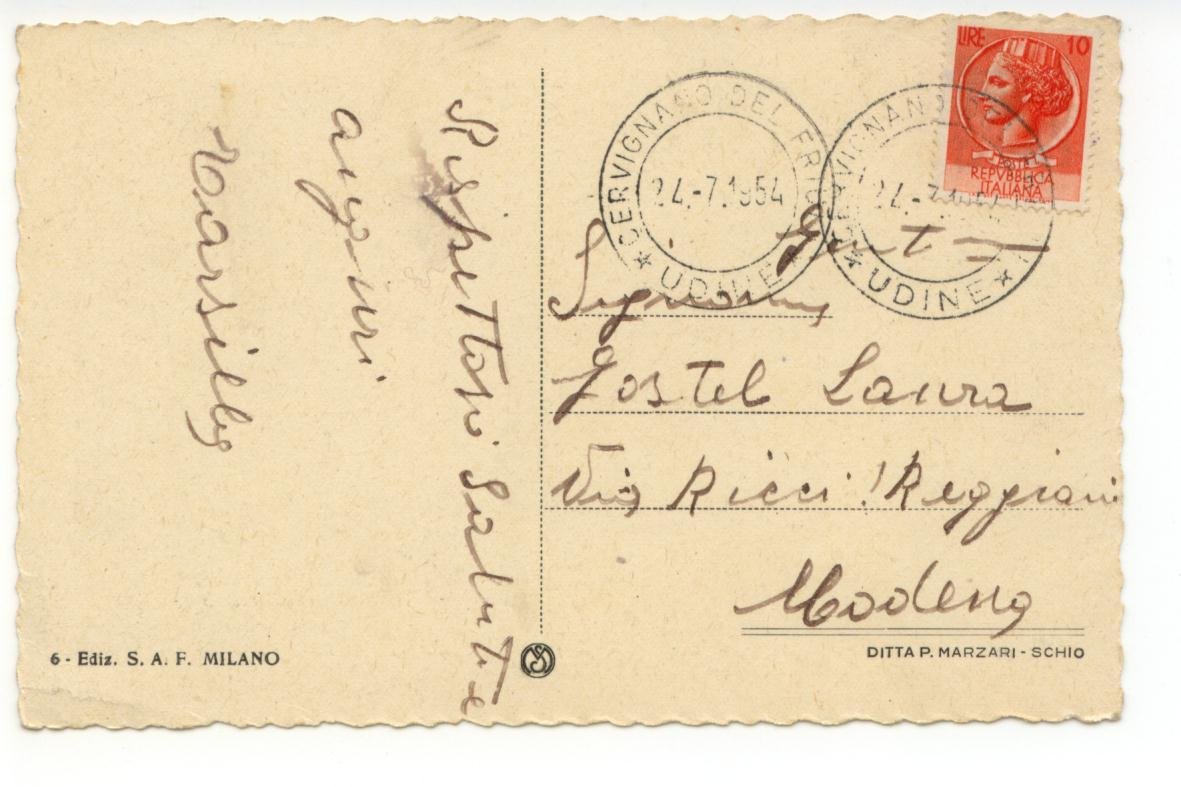 Rispettosi saluti e
auguri
Marsilio
LIRE 10
REPVBBLICA
ITALIANA
CERVIGNANO DEL FRIULI
24.-7.1954
UDINE
CERVIGNANO
24.-7.1954
UDINE
Gent
Signorina
Jostel Laura
Via Ricci Reggiani
Modena
6 - Ediz. S. A. F. MILANO
DITTA P. MARZARI - SCHIO